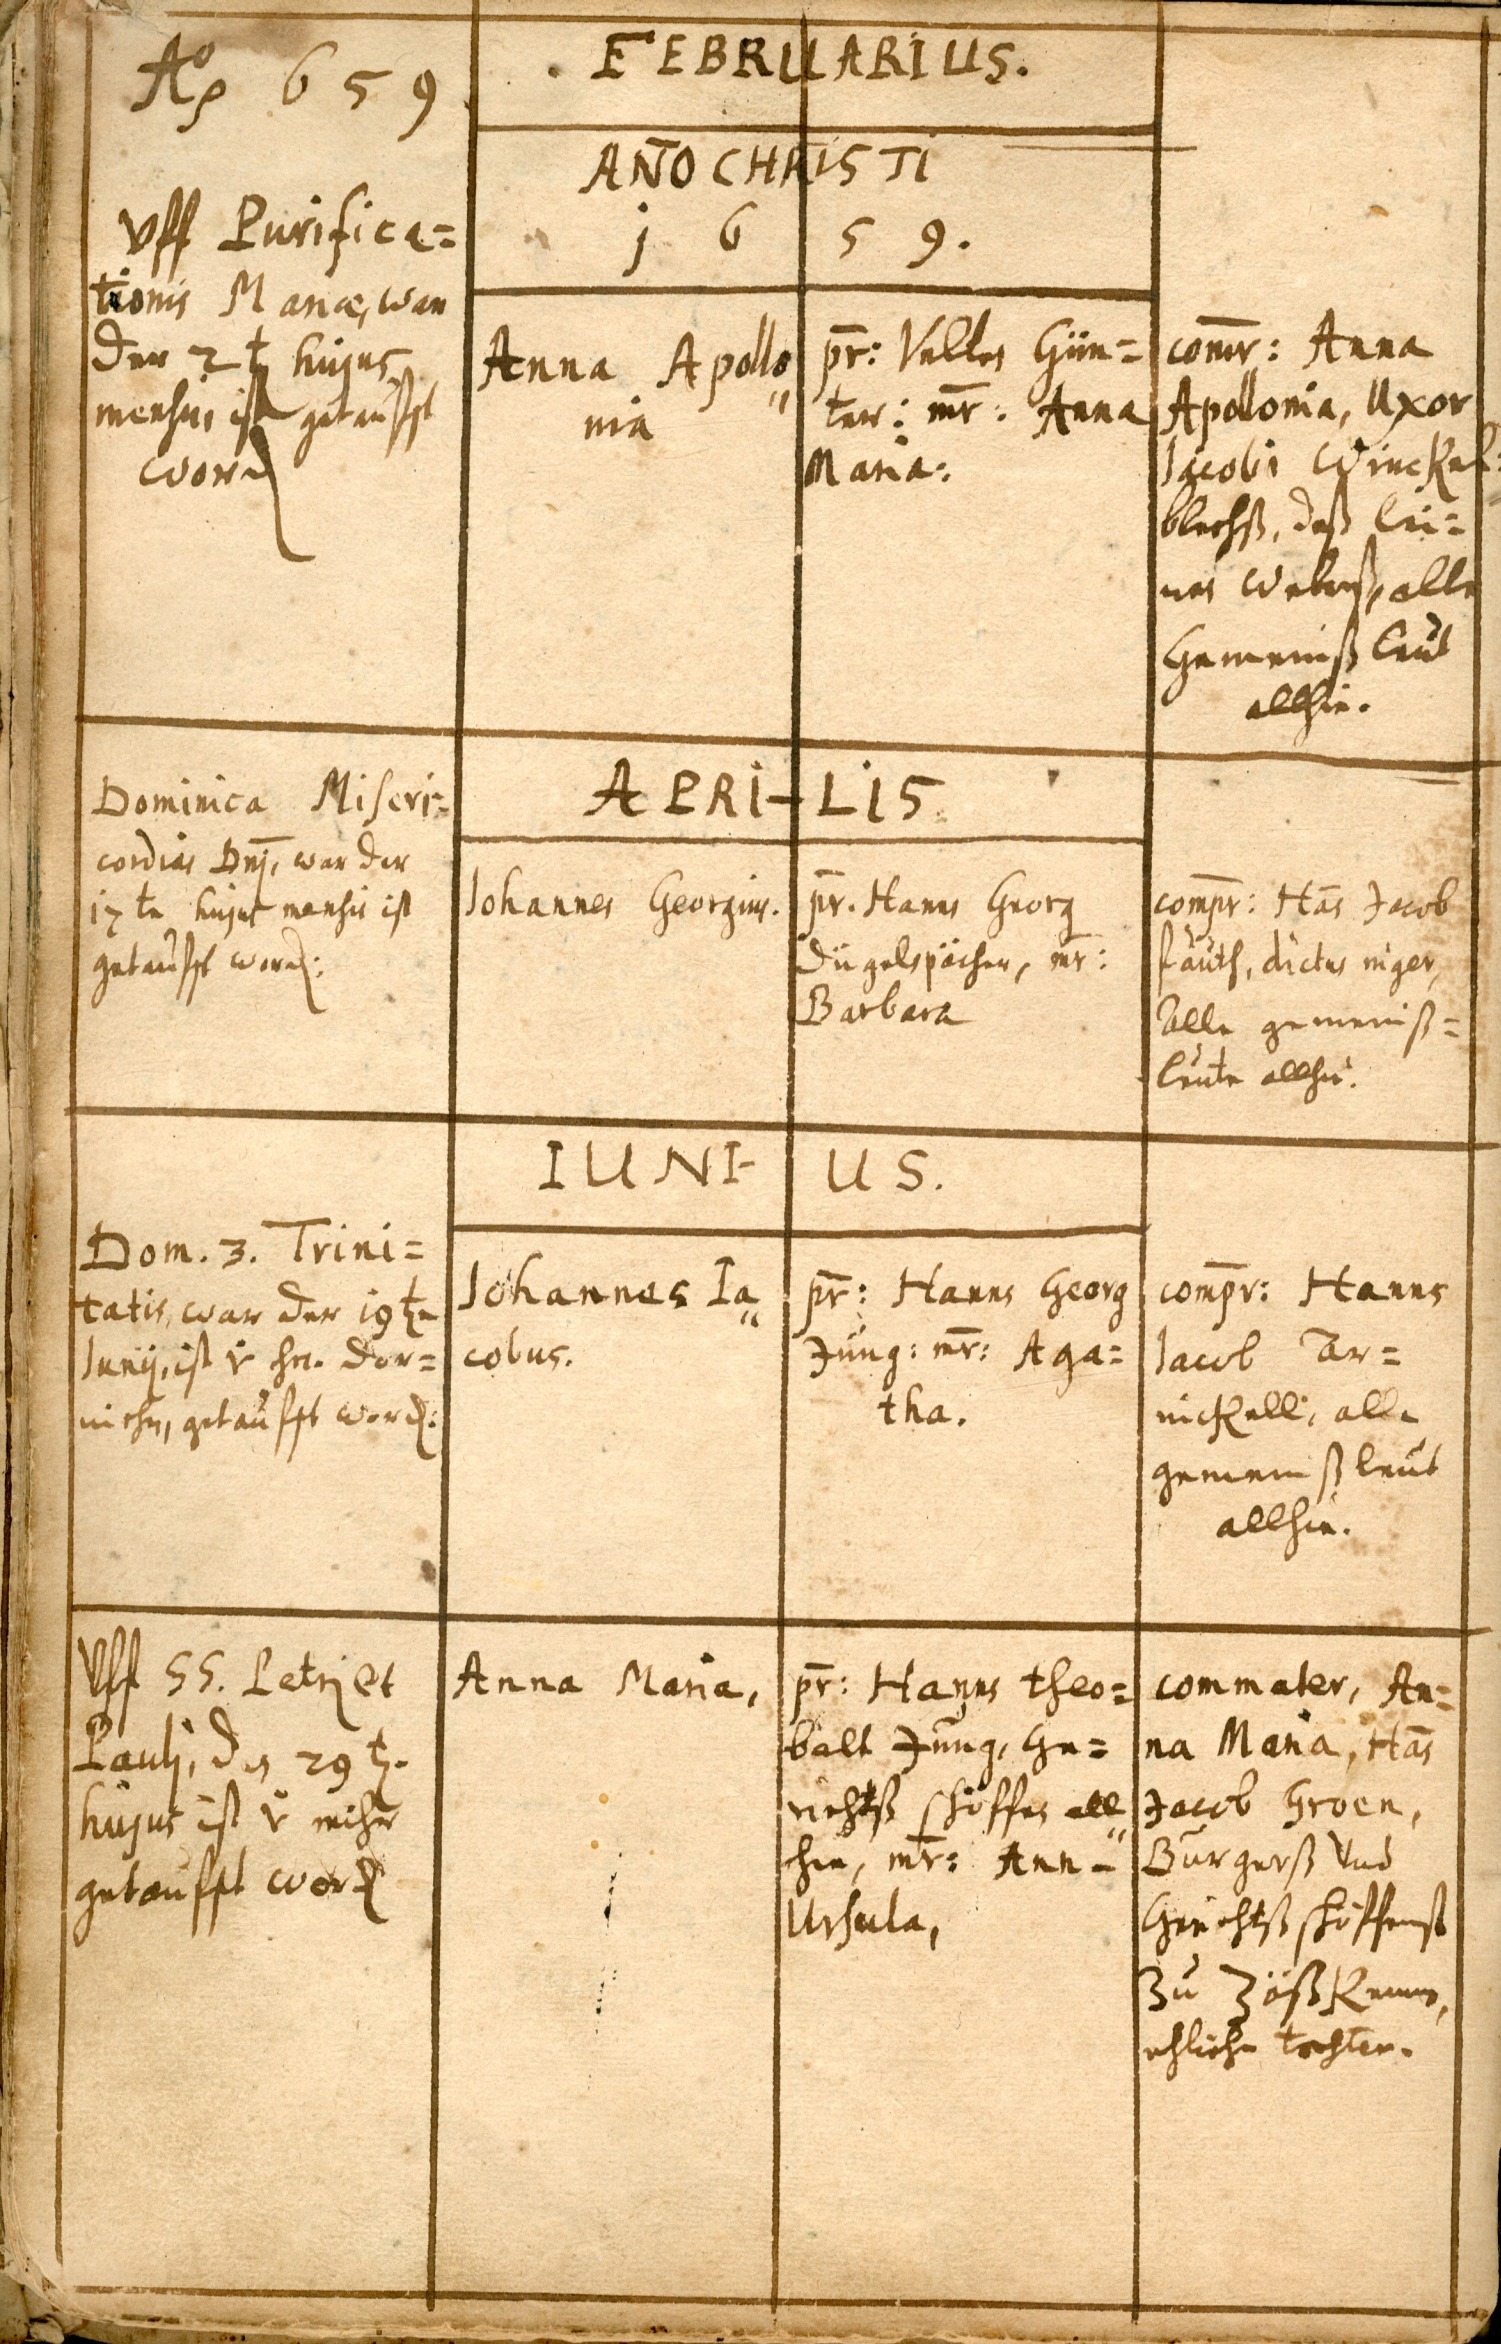 Aº 659
FEBRUARIUS.
AÑO CHRISTI
j 6 5 9.
Vff Purifica=
tionis Mariæ, war
der 2t hujus
mensis ist getaufft
word
Anna Apollo
nia
pr: Velles Gün=
ter: mr: Anna
Maria:
comr: Anna
Apollonia, Uxor
Jacobi Winckel
blechß, deß Lei=
nes Weberß, alle
Gemeinß leut
allhie.
APRI-LIS
Dominica Miseri=
cordias Dnj, war der
17te hujus mensis ist
getaufft word:
Johannes Georgius.
pr. Hanns Georg
Düngelspächer, mr:
Barbara
compr: Hās Jacob
fauth, dictus niger,
Alle gemeinß=
leute allhie.
IUNI- US.
Dom. 3. Trini=
tatis, war der 19te
Junij, ist v hn. Dor=
nichn, getaufft word:
Johannes Ia
cobus.
pr: Hanns Georg
Jung: mr: Aga=
tha.
compr: Hanns
Jacob Ar=
nickell, alle
gemeinß leut
allhie.
Vff SS. Petrj et
Paulj, d 29 t.
hujus ist v mihr
getaufft word
Anna Maria,
pr: Hanns theo=
balt Jung, Ge=
richtß schöffes all
hie, mr: Ann-
Ursula,
commater, An=
na Maria, Hās
Jacob Groen,
Burgerß und
Gerichtß schöffenß
Zu
ehliche tochter.